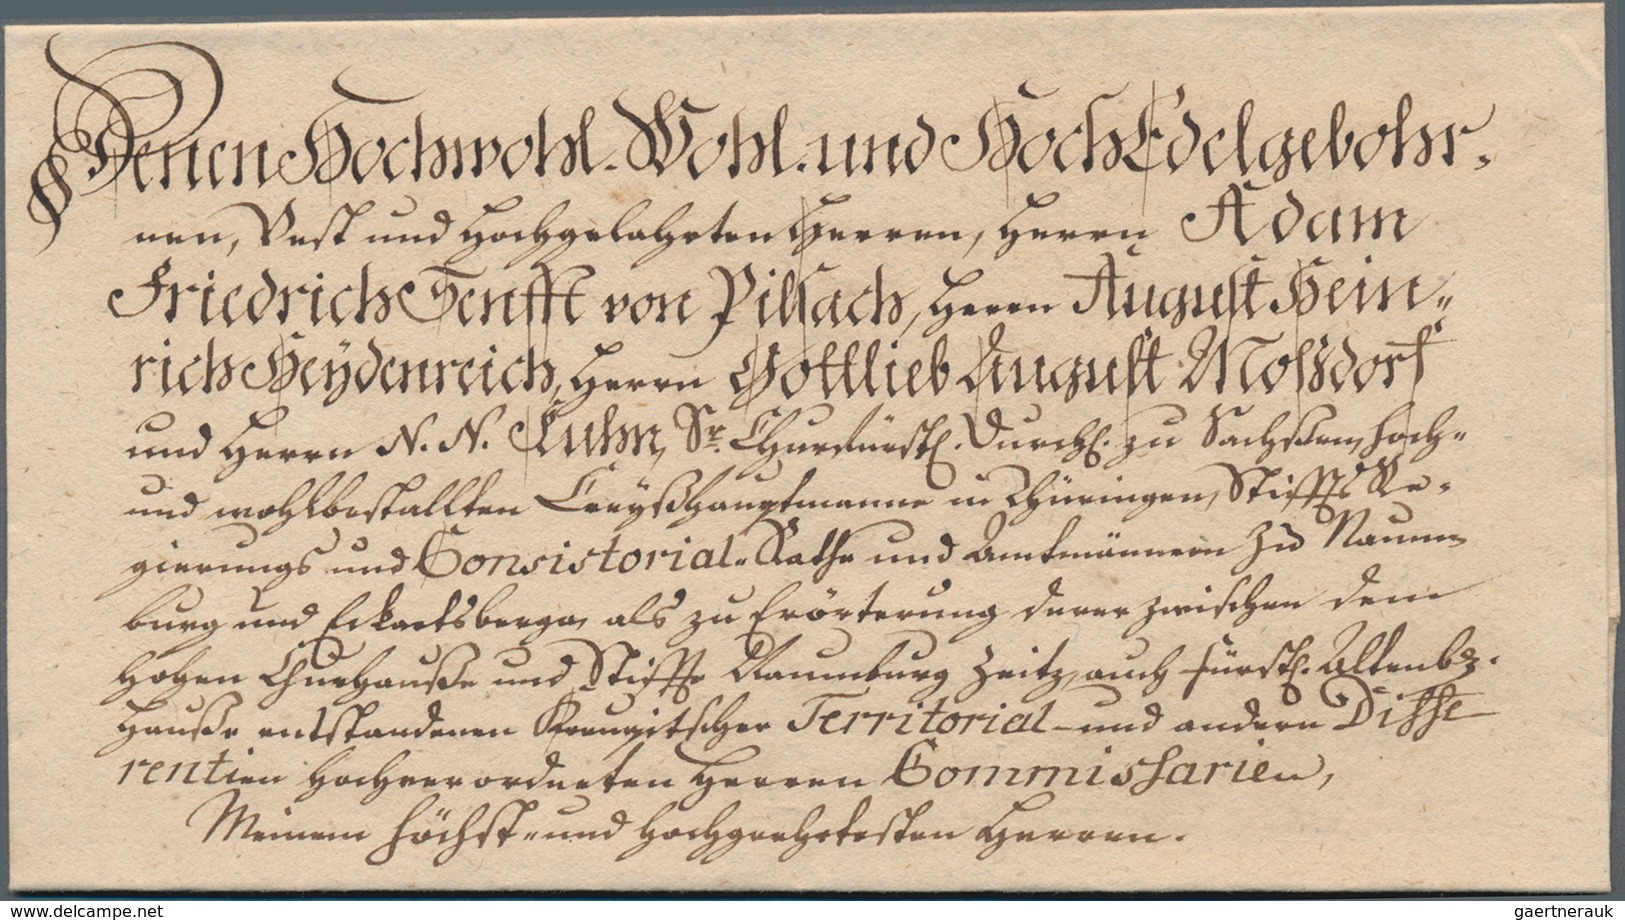 Denen Hochwohl- Wohl- und HochEdelgebohr-
nen, Vest und Hochgelahrten Herren, Herrn Adam
Friedrich Senfft von Pilsach, Herrn August Hein-
rich Heÿdenreich, Herrn Gottlieb August Mosdorf
und Herrn N. N. Luhn, Sr. Churfürstl. Durchl. zu Sachßen, hoch-
und wohlbestallten Creyßhauptmanne in Thüringen, Stiffts Re-
gierungs und Consistorial-Rathe und Amtmännern zu Naum-
burg und Eckartsberga, als zu Erörterung derer zwischen dem
Hohen Churhauße und Stiffte Naumburg Zeitz, auch fürstl. Altenb.
Hauße entstandenen Territorial- und andern Diffe
rentien Hochverordneten Herren Commissarien,
Meinen höchst- und hochgeehrtesten Herren.
www.delcampe.net
gaertnerauk